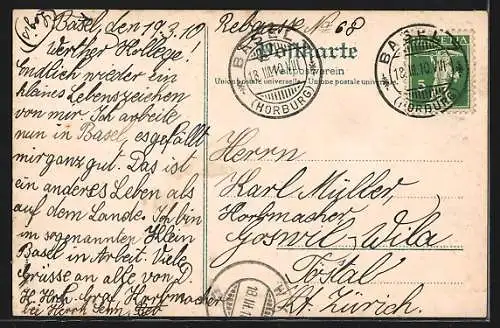 Basel, den 19.3.10
Werther Kollege!
Endlich wieder ein
kleines Lebenszeichen
von mir. Ich arbeite
nun in Basel, es gefällt
mir ganz gut. Das ist
ein anderes Leben als
auf dem Lande. Ich bin
im sogenannten Klein
Basel in Arbeit. Viele
Grüsse an alle von D.
H. Hch. Graf, Korbmacher
bei Herrn Senn
No 68
Postkarte
Weltpostverein
Union postale universelle. Unione postale universale
BASEL
18.III.10.VIII
(HORBURG)
BASEL
18.III.10.VIII
(HORBURG)
HELVETIA
Herrn
Karl Müller,
Korbmacher
Goswil, Wila
Tösstal
Kt. Zürich.
18.III.1